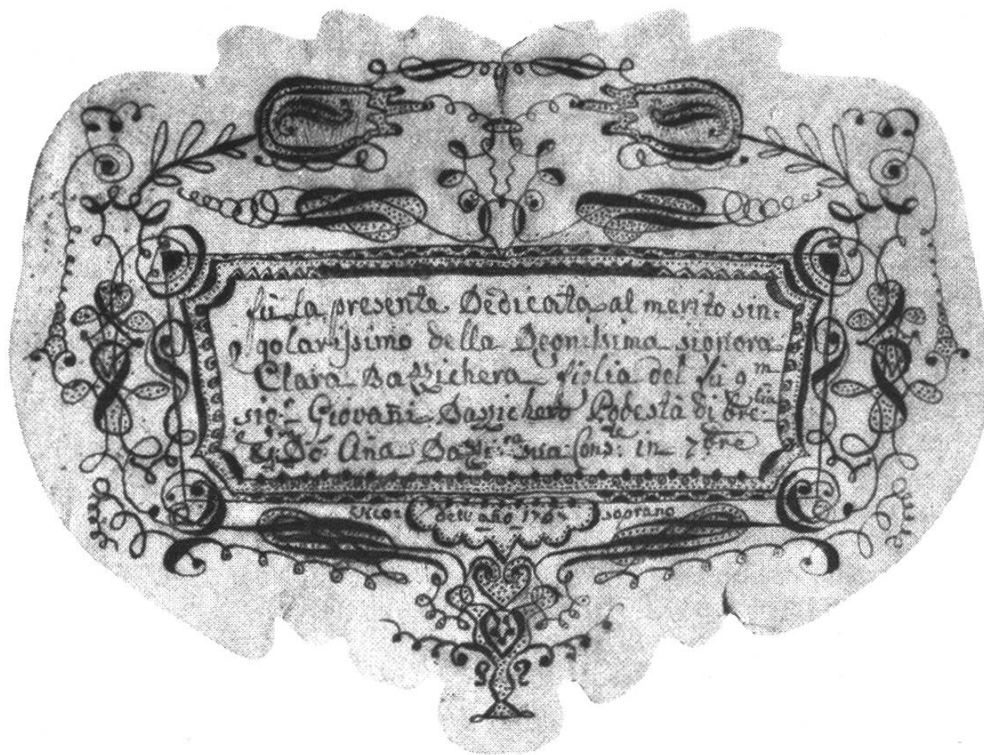 fù la presente Dedicata al merito sin:
golarissimo della Degnissima signora
Clara Bazzichera figlia del fù qm
sigr Giovani Bazzichero Podestà di
Ana sua Cons: in 7bre
Vico: dell año 176 soprano